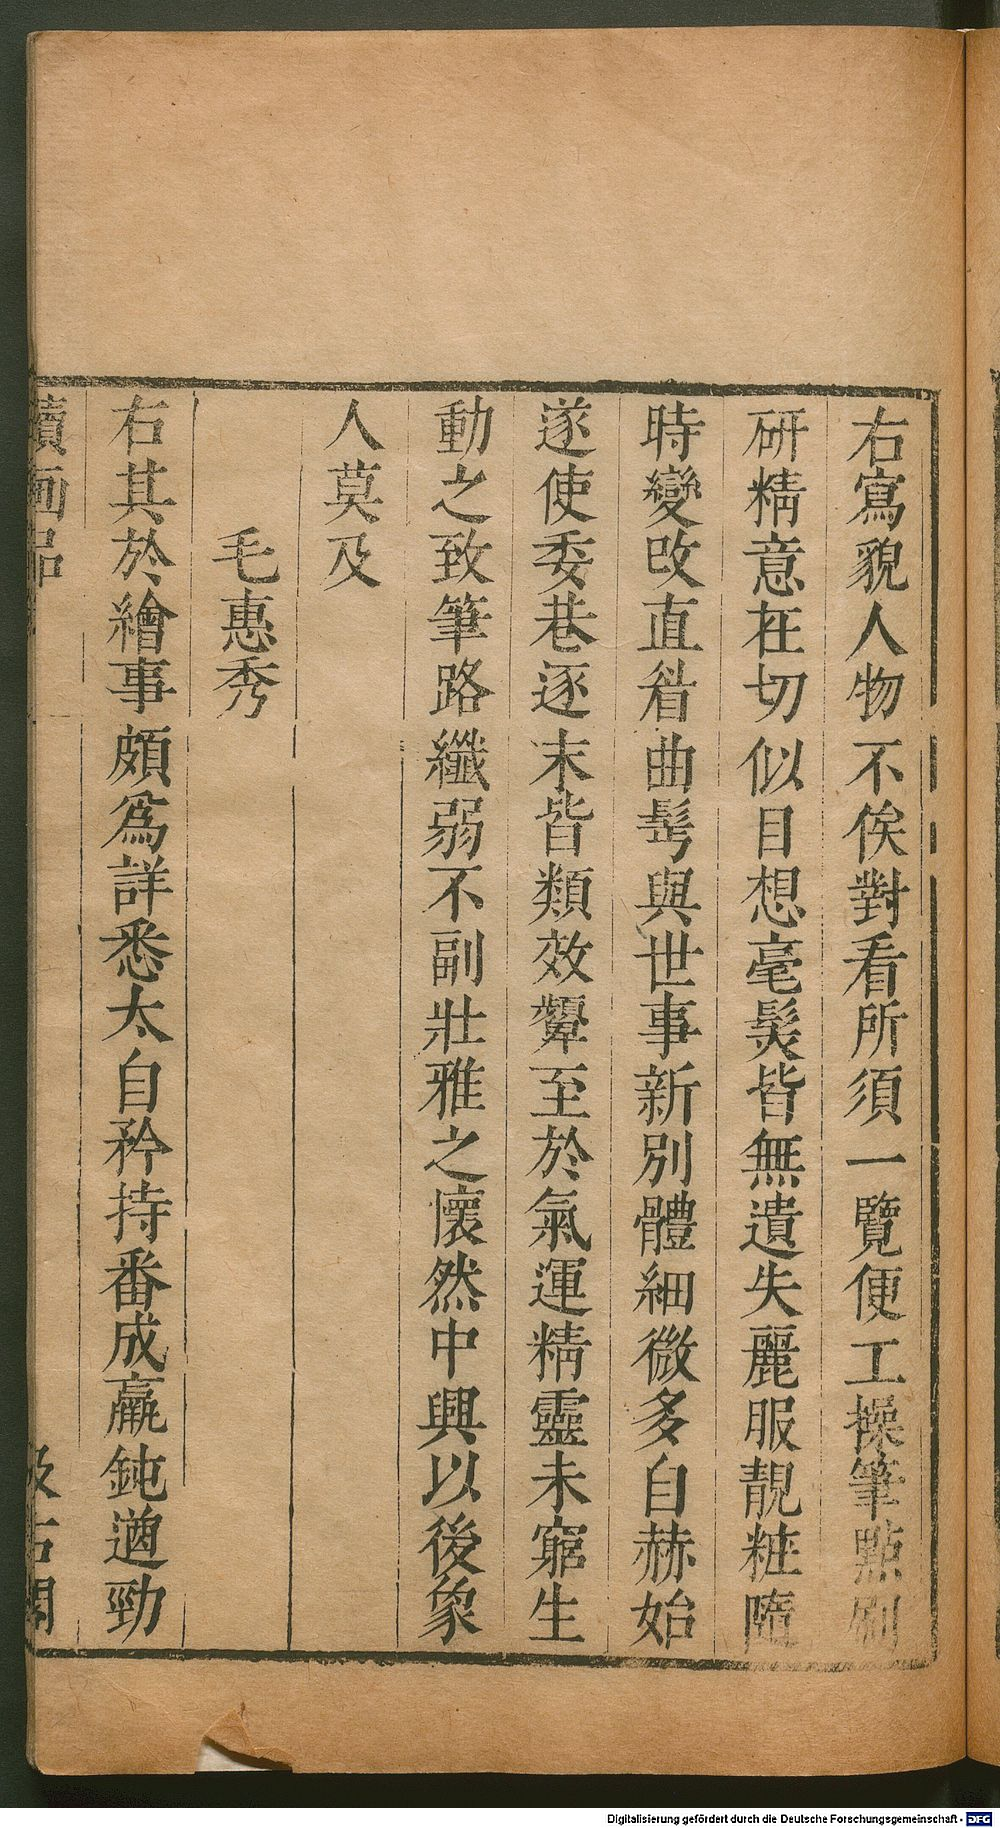 右寫貌人物不俟對看所須一覽便工操筆點刷
研精意在切似目想毫髮皆無遺失麗服靚粧隨
時變改直眉曲髩與世事新別體細微多自赫始
遂使委巷逐末皆類效顰至於氣運精靈未窮生
動之致筆路纖弱不副壯雅之懷然中興以後象
人莫及
毛惠秀
右其於繪事頗爲詳悉太自矜持番成羸鈍遒勁
續画品
汲古閣
Digitalisierung gefördert durch die Deutsche Forschungsgemeinschaft - DFG